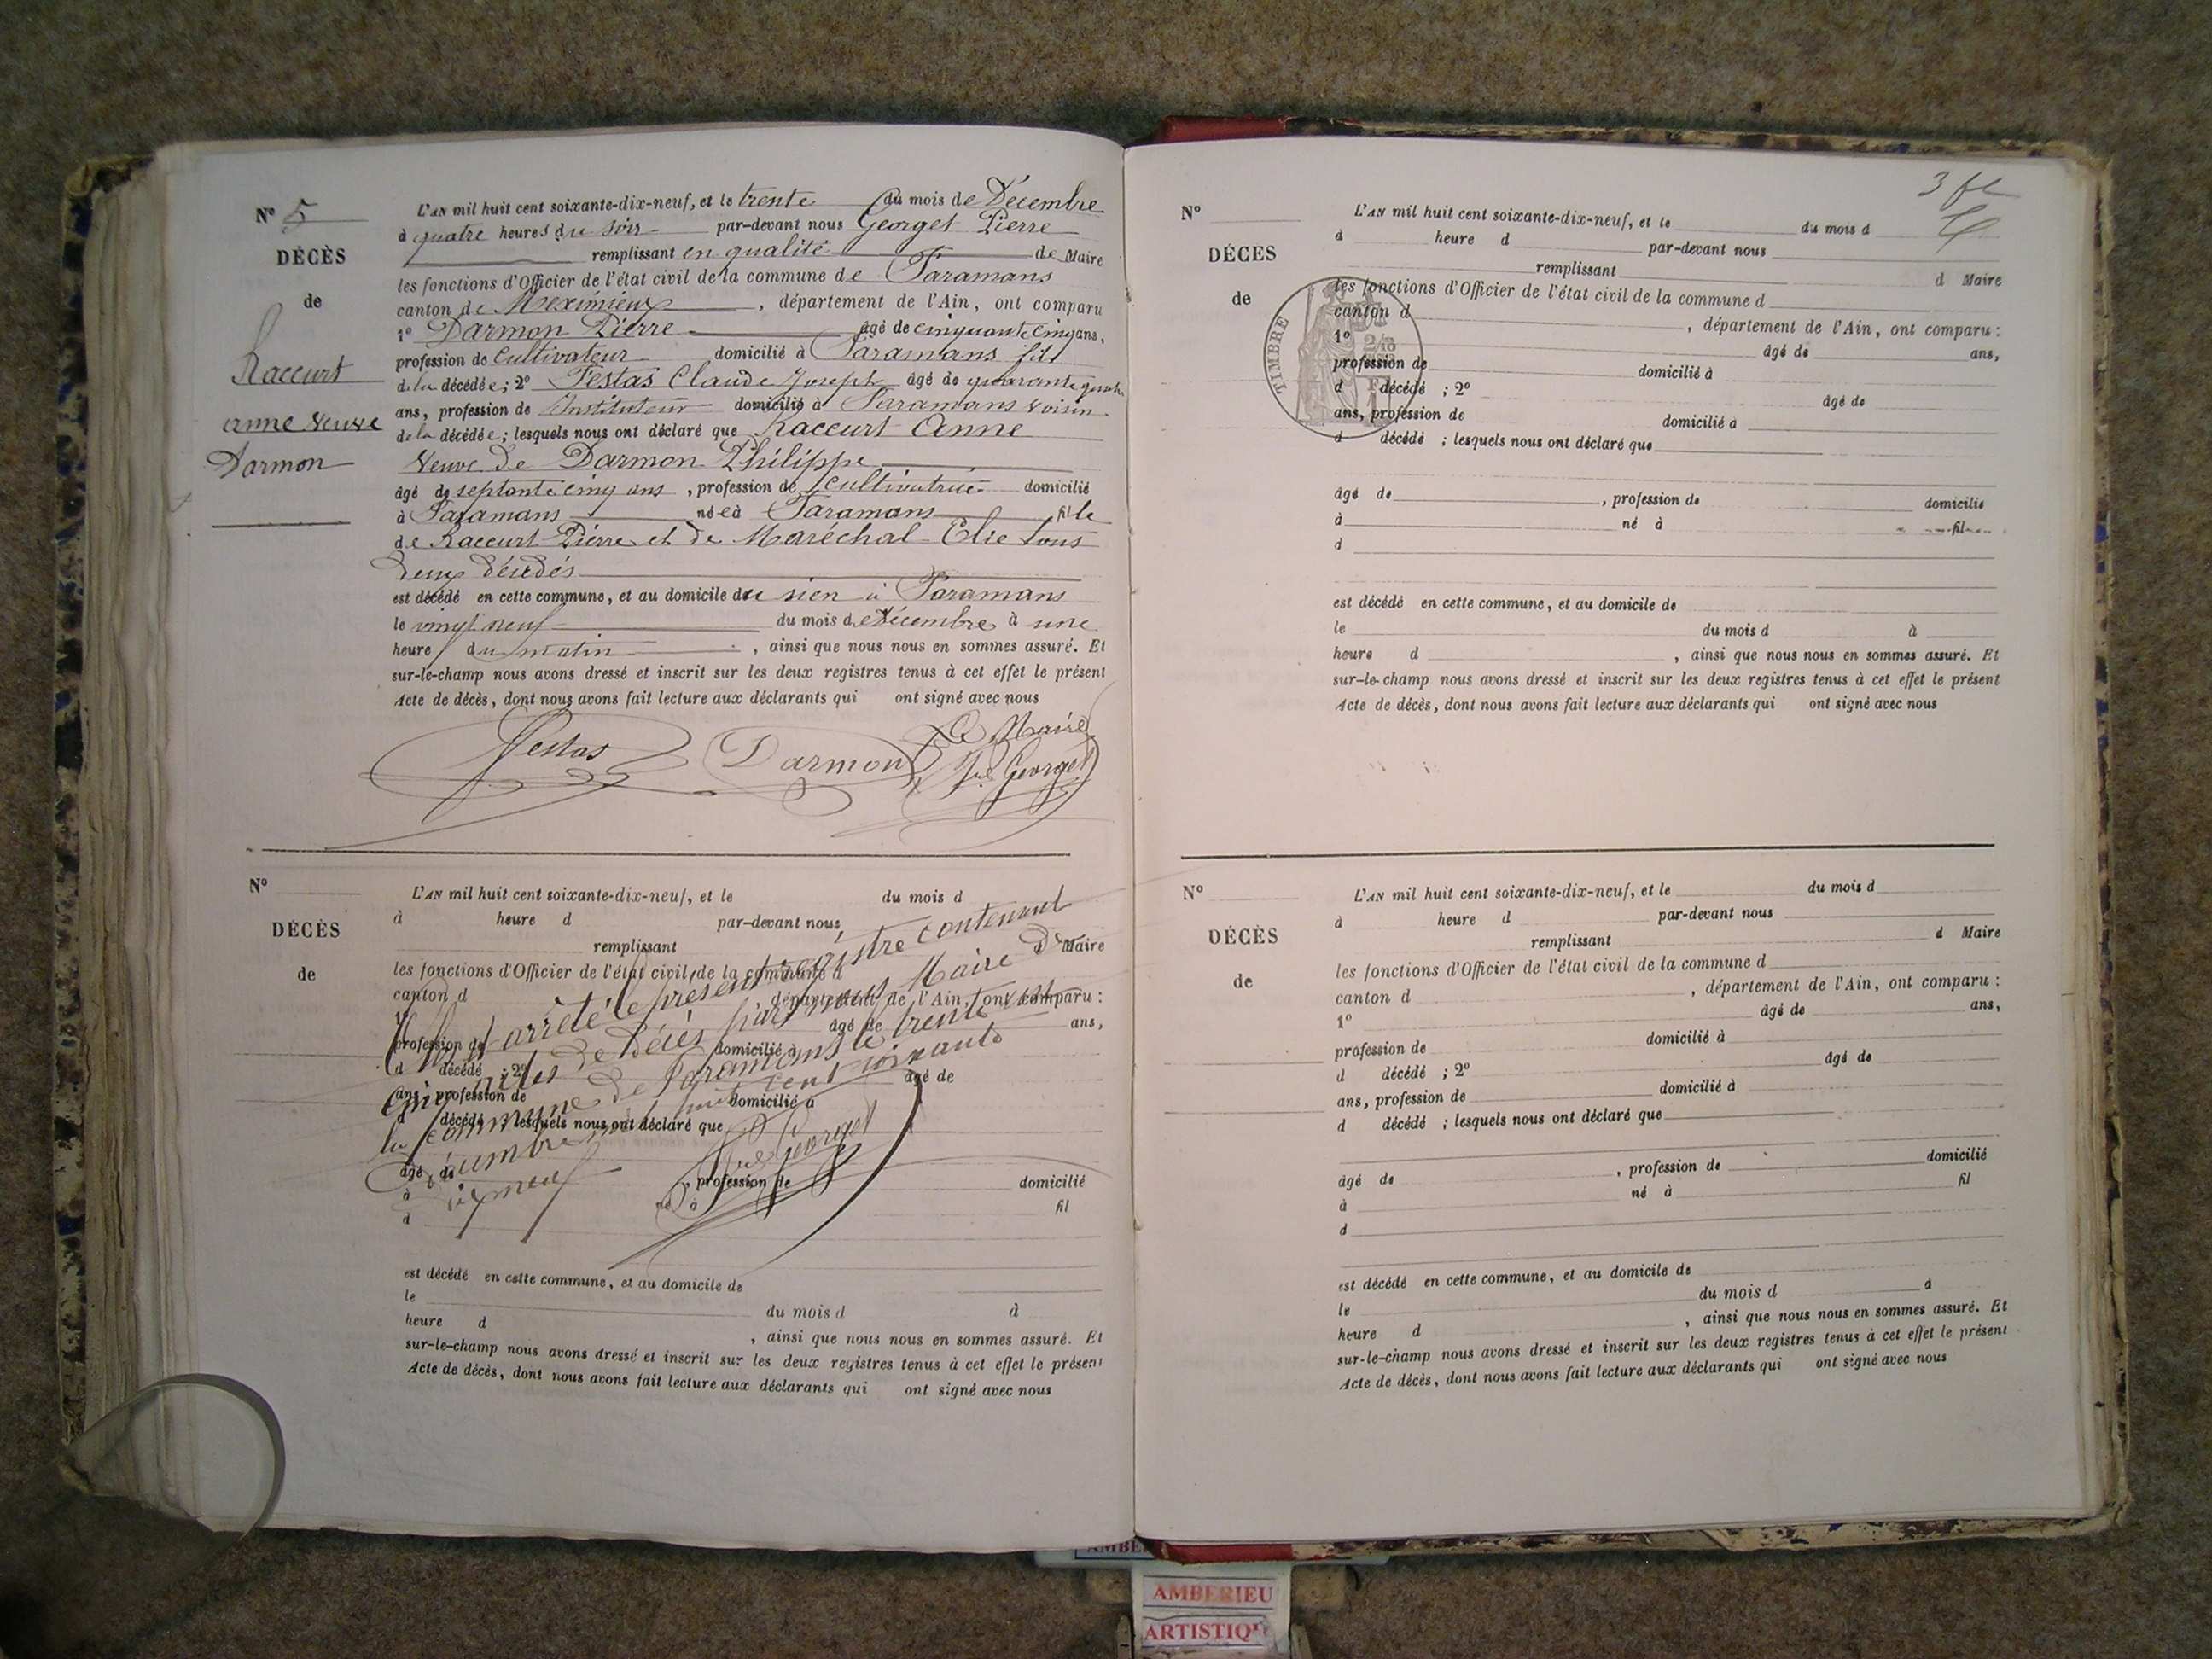 N° 5
DÉCÈS
de
Raccurt
anne Veuve
Darmon
L'AN mil huit cent soixante-dix-neuf, et le trente du mois de Décembre
à quatre heures du soir par-devant nous Georget Pierre
remplissant en qualité de Maire
les fonctions d'Officier de l'état civil de la commune de Faramans
canton de Meximieux, département de l'Ain, ont comparu
1° Darmon Pierre âgé de cinquante cinq ans,
profession de Cultivateur domicilié à Faramans fils
de la décédée; 2° Festas Claude Joseph âgé de quarante
ans, profession de Instituteur domicilié à Faramans voisin
de la décédée; lesquels nous ont déclaré que Raccurt Anne
Veuve de Darmon Philippe
âgé de septante cinq ans, profession de Cultivatrice domicilié
à Faramans née à Faramans fille
de Raccurt Pierre et de Maréchal Elie tous
deux décédés
est décédé en cette commune, et au domicile du sien à Faramans
le vingt neuf du mois de Décembre à une
heure du matin, ainsi que nous nous en sommes assuré. Et
sur-le-champ nous avons dressé et inscrit sur les deux registres tenus à cet effet le présent
Acte de décès, dont nous avons fait lecture aux déclarants qui ont signé avec nous
Le Maire
Festas Darmon Georget
N°
DÉCÈS
de
L'AN mil huit cent soixante-dix-neuf, et le du mois d
à heure d par-devant nous
remplissant d Maire
les fonctions d'Officier de l'état civil de la commune d
canton d , département de l'Ain, ont comparu :
1° âgé de ans,
profession de domicilié à
d décédé ; 2° âgé de
ans, profession de domicilié à
d décédé ; lesquels nous ont déclaré que
âgé de , profession de domicilié
à né à fil
d
arrêté le présent registre contenant
cinq actes de Décès par nous Maire de
la commune de Faramans le trente un
Décembre mil huit cent soixante
dix neuf
Georget
est décédé en cette commune, et au domicile de
le du mois d à
heure d , ainsi que nous nous en sommes assuré. Et
sur-le-champ nous avons dressé et inscrit sur les deux registres tenus à cet effet le présent
Acte de décès, dont nous avons fait lecture aux déclarants qui ont signé avec nous
3
N°
DÉCÈS
de
TIMBRE
L'AN mil huit cent soixante-dix-neuf, et le du mois d
à heure d par-devant nous
remplissant d Maire
les fonctions d'Officier de l'état civil de la commune d
canton d , département de l'Ain, ont comparu :
1° âgé de ans,
profession de domicilié à
d décédé ; 2° âgé de
ans, profession de domicilié à
d décédé ; lesquels nous ont déclaré que
âgé de , profession de domicilié
à né à fil
d
est décédé en cette commune, et au domicile de
le du mois d à
heure d , ainsi que nous nous en sommes assuré. Et
sur-le-champ nous avons dressé et inscrit sur les deux registres tenus à cet effet le présent
Acte de décès, dont nous avons fait lecture aux déclarants qui ont signé avec nous
N°
DÉCÈS
de
L'AN mil huit cent soixante-dix-neuf, et le du mois d
à heure d par-devant nous
remplissant d Maire
les fonctions d'Officier de l'état civil de la commune d
canton d , département de l'Ain, ont comparu :
1° âgé de ans,
profession de domicilié à
d décédé ; 2° âgé de
ans, profession de domicilié à
d décédé ; lesquels nous ont déclaré que
âgé de , profession de domicilié
à né à fil
d
est décédé en cette commune, et au domicile de
le du mois d à
heure d , ainsi que nous nous en sommes assuré. Et
sur-le-champ nous avons dressé et inscrit sur les deux registres tenus à cet effet le présent
Acte de décès, dont nous avons fait lecture aux déclarants qui ont signé avec nous
AMBERIEU
ARTISTIQ